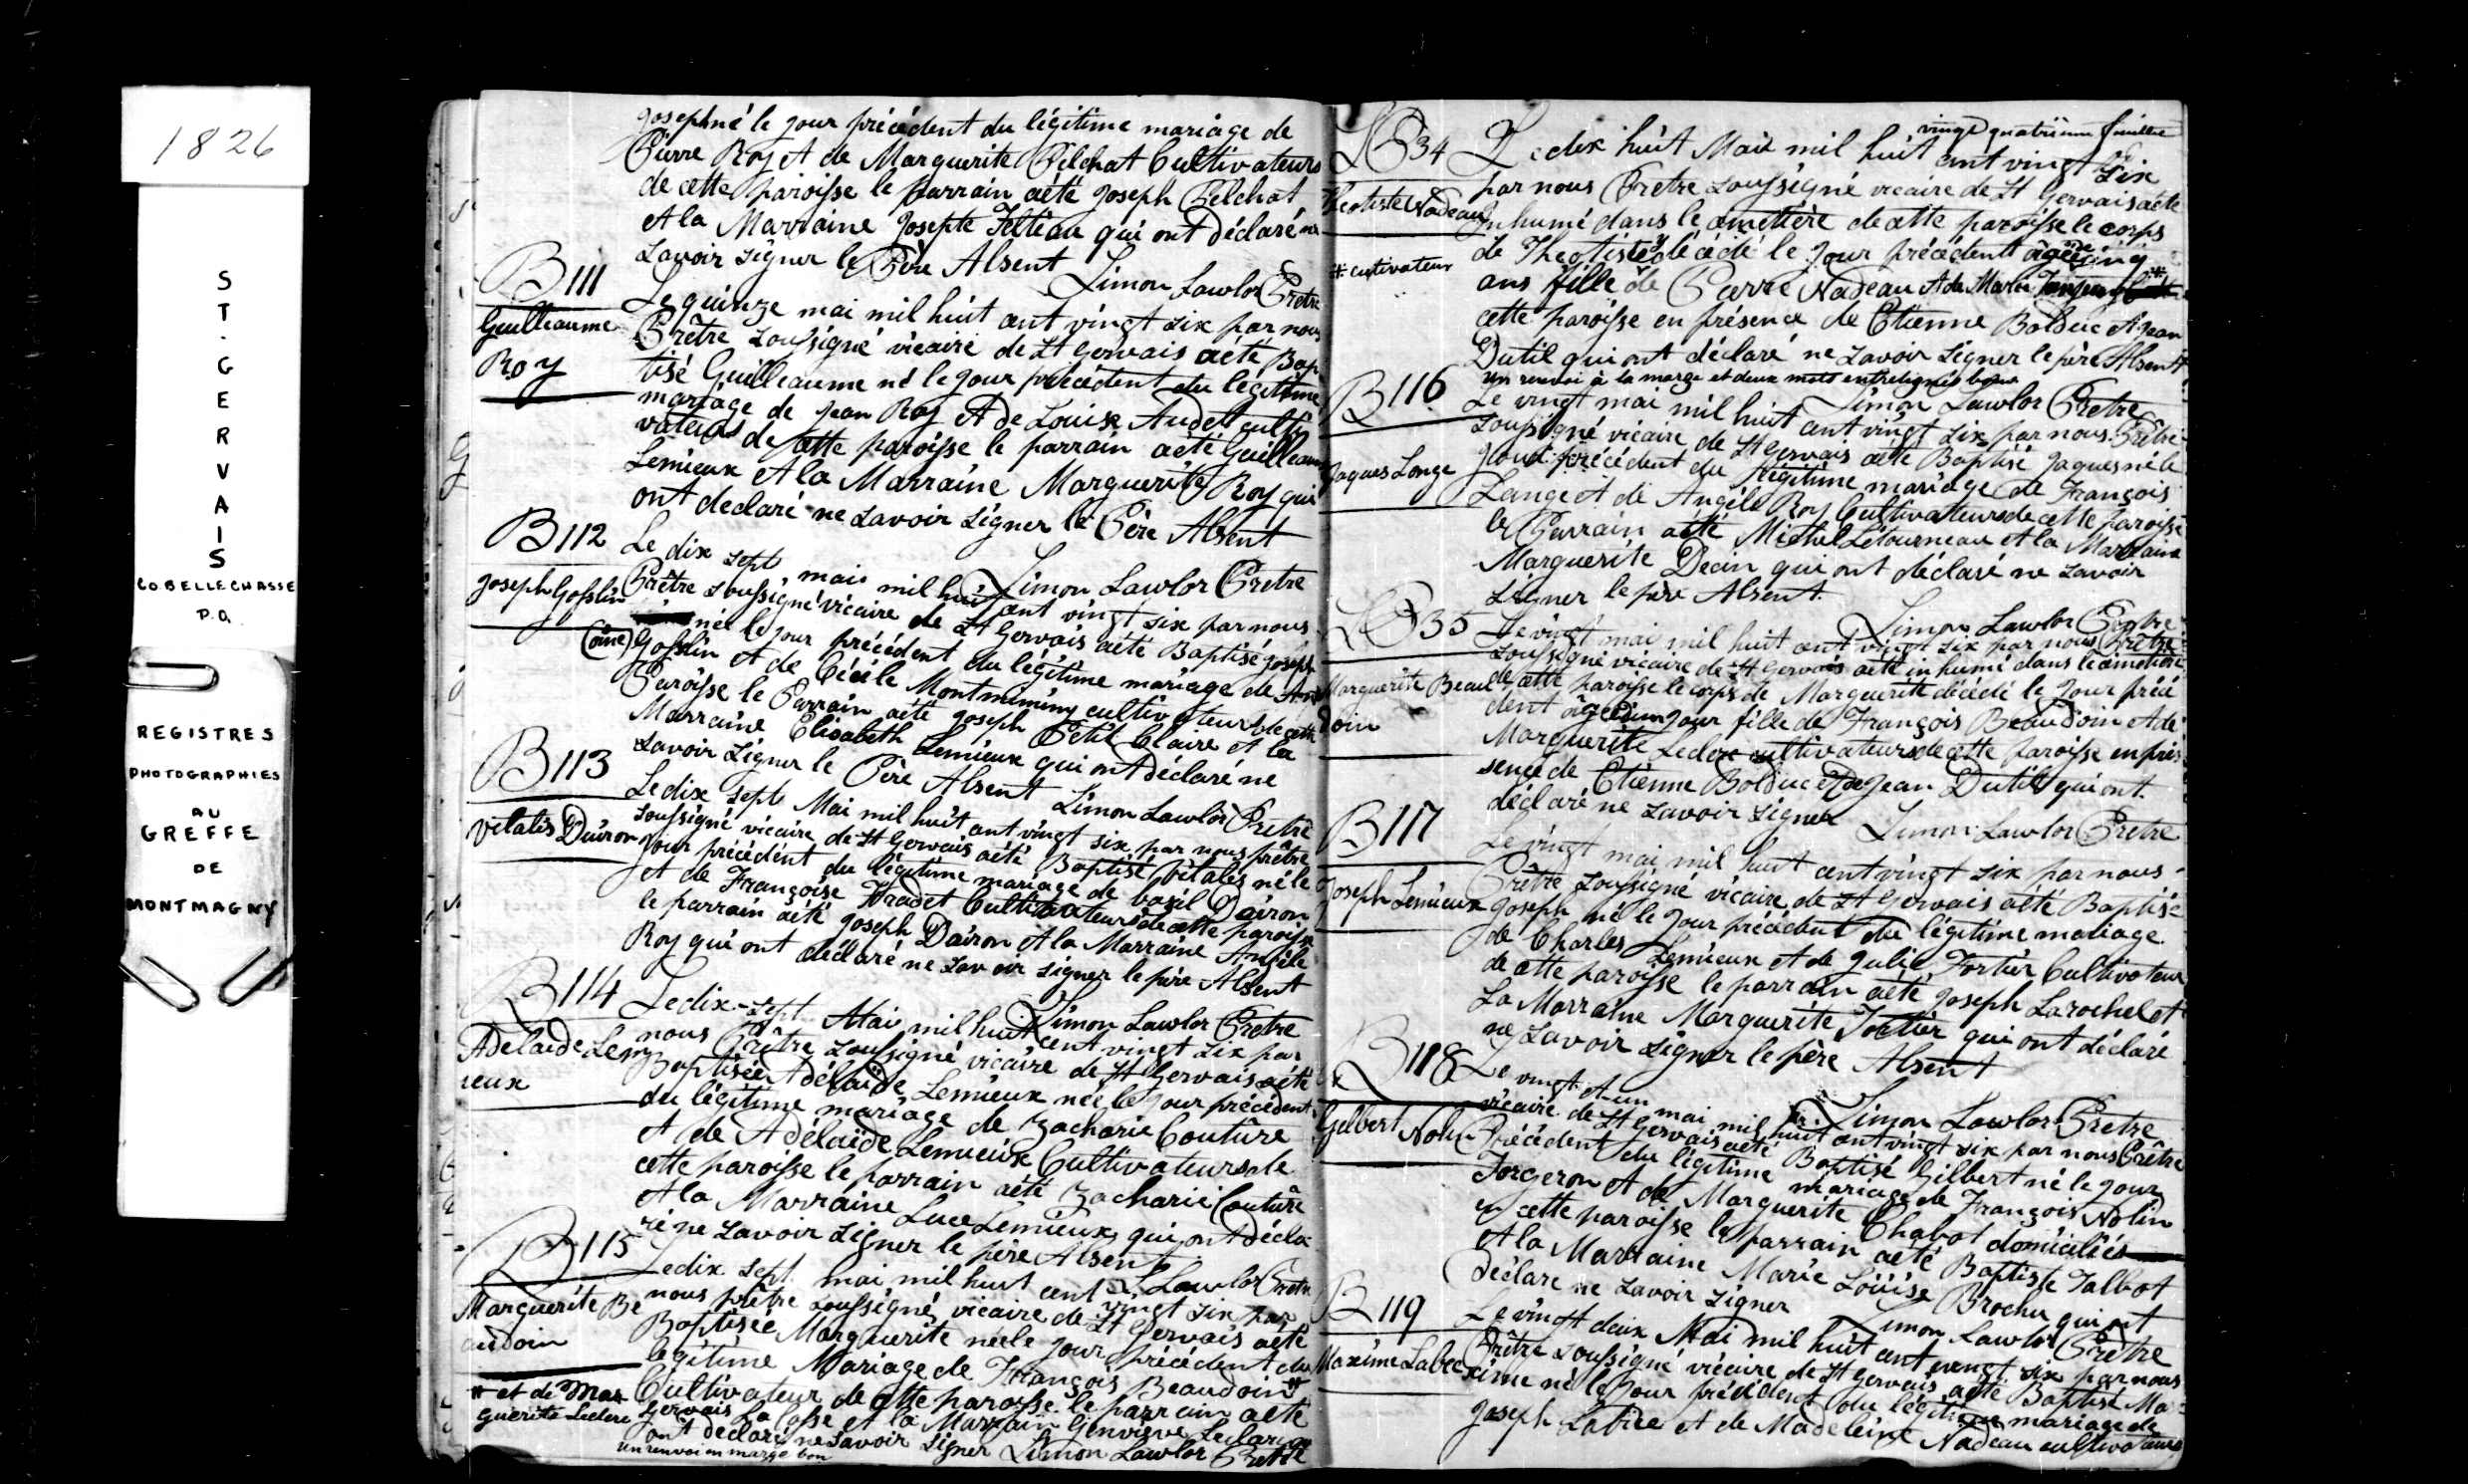 1826
ST. GERVAIS
CO. BELLECHASSE
P.Q.
REGISTRES
PHOTOGRAPHIES
AU
GREFFE
DE
MONTMAGNY
Joseph né le jour précédent du légitime mariage de
Pierre Roy et de Marguerite Belchat Cultivateurs
de cette paroisse le parrain aété Joseph Belchat
et la Marraine Josepte Felteau qui ont déclaré ne
savoir signer le Père Absent
Simon Lawlor Prêtre
B111
Guilleaume
Roy
Le quinze mai mil huit cent vingt six par nous
Prêtre soussigné vicaire de St Gervais aété Bap
tisé Guilleaume né le jour précédent du légitime
mariage de Jean Roy et de Louise Audet culti
vateurs de cette paroisse le parrain aété Guilleaume
Lemieux et la Marraine Marguerite Roy qui
ont declaré ne savoir signer le Père Absent
Simon Lawlor Prêtre
B112
Joseph Gosslin
Le dix sept mai mil huit cent vingt six par nous
Prêtre soussigné vicaire de St Gervais aété Baptisé Joseph
né le jour précédent du légitime mariage de
(oine) Gosslin et de Cécile Montmimimy cultivateurs de cette
Paroisse le Parrain aété Joseph Petit Claire et la
Marraine Elisabeth Lemieux qui ont déclaré ne
savoir signer le Père Absent
Simon Lawlor Prêtre
B113
Vitalis Dairon
Le dix sept Mai mil huit cent vingt six par nous prêtre
soussigné vicaire de St Gervais aété Baptisé Vitalés né le
jour précédent du légitime mariage de bazil Dairon
et de Françoise Fradet Cultivateurs de cette paroisse
le parrain aété Joseph Dairon et la Marraine Angèle
Roy qui ont déclaré ne savoir signer le père Absent
Simon Lawlor Prêtre
B114
Adelaide Lem
ieux
Le dix-sept Mai mil huit cent vingt six par
nous Prêtre soussigné vicaire de St Gervais aété
Baptisée Adélaïde Lemieux née le jour précédent
du légitime mariage de Zacharie Couture
et de Adélaïde Lemieux Cultivateurs de
cette paroisse le parrain aété Zacharie Couture
et la Marraine Luce Lemieux qui ont décla
ré ne savoir signer le père Absent
S. Lawlor Prêtre
B115
Marguerite Be
audoin
Le dix sept mai mil huit cent vingt six par
nous prêtre soussigné vicaire de St Gervais aété
Baptisée Marguerite née le jour précédent du
légitime Mariage de François Beaudoin*
Cultivateur de cette paroisse le parrain aété
Gervais Labosse et la Marraine Genvieve Leclair qui
ont declaré ne savoir signer Simon Lawlor Prêtre
un renvoi en marge bon
* et de Mar
guerite Leclerc
vingt quatrième feuille
S34
Theotiste Nadeau
* cultivateur
Le dix huit Mai mil huit cent vingt six
par nous Prêtre soussigné vicaire de St Gervais aété
Inhumé dans le cimetière de cette paroisse le corps
de Theotiste décédé le jour précédent âgée de cinq
ans fille de Pierre Nadeau et de Marie
cette paroisse en présence de Etienne Bolduc et Jean
Dutil qui ont déclaré ne savoir signer le père Absent
un renvoi à la marge et deux mots entrelignés bons
Simon Lawlor Prêtre
B116
Jaques Lange
Le vingt mai mil huit cent vingt six par nous Prêtre
soussigné vicaire de St Gervais aété Baptisé Jaques né le
jour précédent du légitime mariage de François
Lange et de Angèle Roy Cultivateurs de cette Paroisse
le Parrain aété Michel Létourneau et la Marraine
Marguerite Decin qui ont déclaré ne savoir
signer le père Absent.
Simon Lawlor Prêtre
S35
Marguerite Beau
doin
Le vingt mai mil huit cent vingt six par nous Prêtre
soussigné vicaire de St Gervais aété inhumé dans le cimetière
de cette paroisse le corps de Marguerite décédé le jour précé
dent âgée d'un jour fille de François Beaudoin et de
Marguerite Leclerc cultivateurs de cette paroisse en prés
sence de Etienne Bolduc et de Jean Dutil qui ont
déclaré ne savoir signer
Simon Lawlor Prêtre
B117
Joseph Lemieux
Le vingt mai mil huit cent vingt six par nous
Prêtre soussigné vicaire de St Gervais aété Baptisé
Joseph né le jour précédent du légitime mariage
de Charles Lemieux et de Julie Fortier Cultivateur
de cette paroisse le parrain aété Joseph Larochel et
La Marraine Marguerite Fortier qui ont déclaré
ne savoir signer le père Absent
Simon Lawlor Prêtre
B118
Gelbert Nolin
Le vingt et un mai mil huit cent vingt six par nous Prêtre
vicaire de St Gervais aété Baptisé Gilbert né le jour
Précédent du légitime mariage de François Nolin
Forgeron et de Marguerite Chabot domiciliés
en cette paroisse le parrain aété Baptiste Talbot
et la Marraine Marie Loüise Brochu qui ont
déclaré ne savoir signer
Simon Lawlor Prêtre
B119
Maxime Labee
Le vingt deux Mai mil huit cent vingt six par nous
Prêtre soussigné vicaire de St Gervais aété Baptisé Ma
xime né le jour précédent du légitime mariage de
Joseph Labée et de Madeleine Nadeau cultivateurs